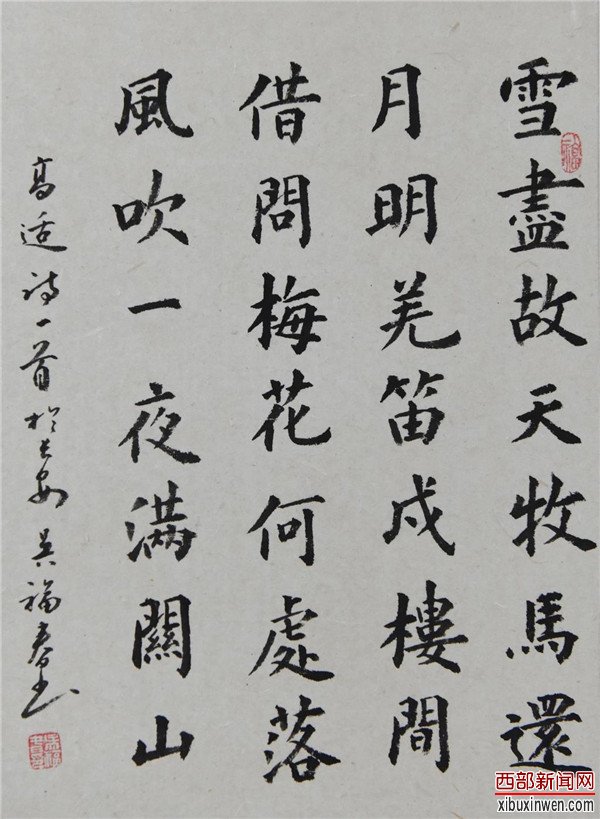 雪盡故天牧馬還
月明羌笛戍樓間
借問梅花何處落
風吹一夜滿關山
高适诗一首於长安 吴福春书
西部新闻网
xibuxinwen.com